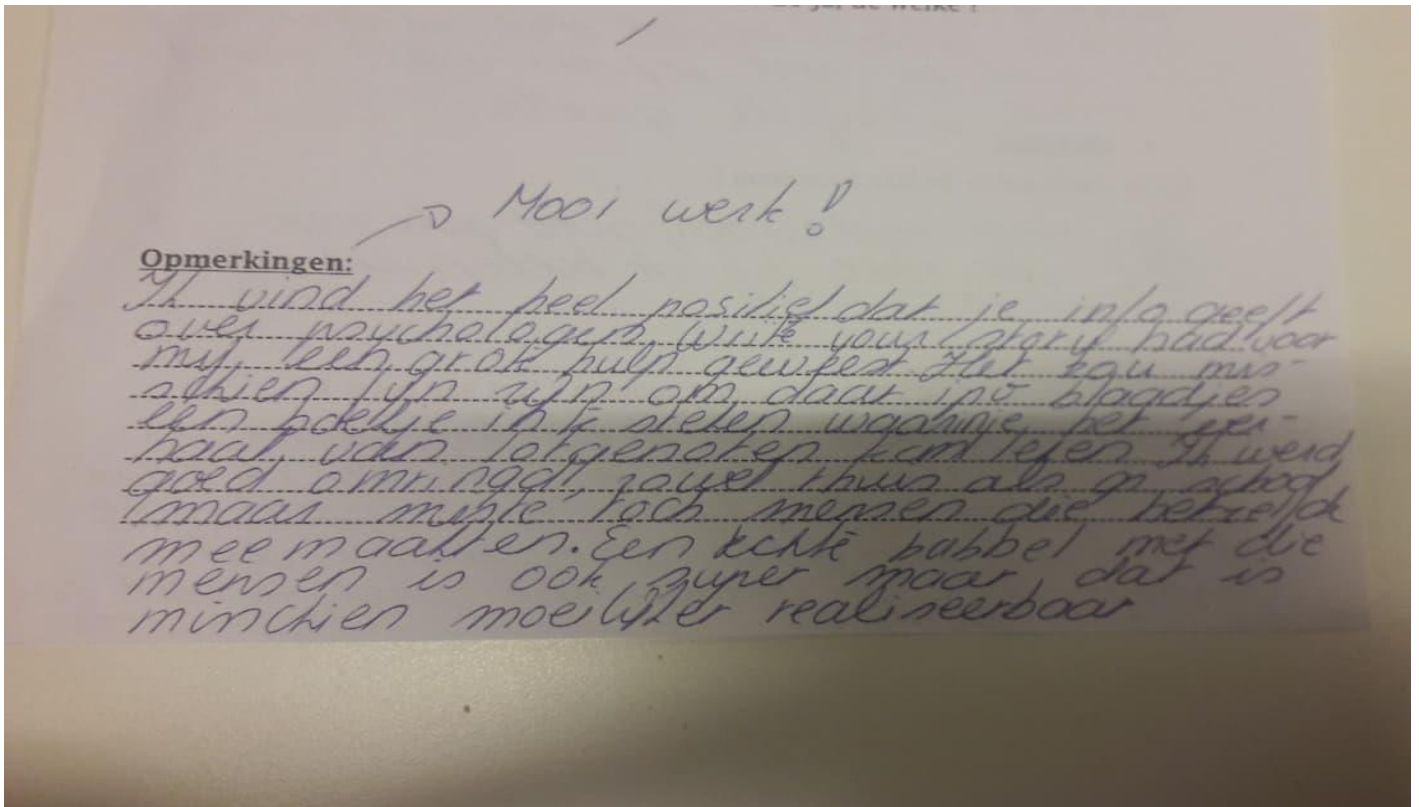 Zo ja, de welke?
Mooi werk!
Opmerkingen:
Ik vind het heel positief dat je info geeft
over psychologen, write your story had voor
mij een grote hulp geweest. Het zou mis-
schien fijn zijn om daar ipv blaadjes
een boekje in te steken waarin je het ver-
haal van lotgenoten kan lezen. Ik werd
goed omringd, zowel thuis als op school
maar miste toch mensen die hetzelfde
meemaakten. Een echte babbel met die
mensen is ook super maar, dat is
misschien moeilijker realiseerbaar